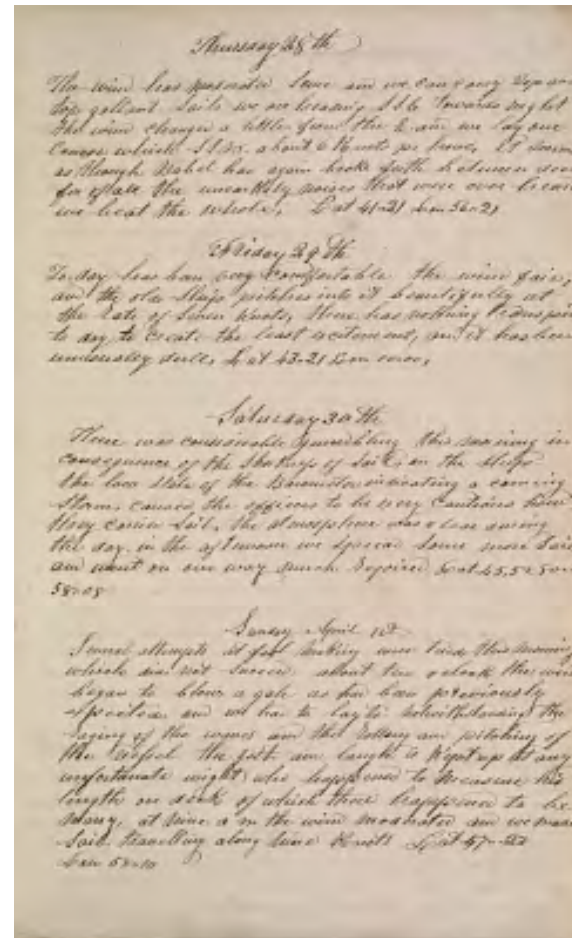 Thursday 28th
The wind has moderated some and we can carry top and
top gallant sails we are heading SSE towards night
the wind changed a little from the E and we lay our
Course which is about 6 Knots per hour, It
as though Babel had again broke forth between
for of all the unearthly noises that were ever heard
we beat the whole, Lat 41-21 Lon 56-21
Friday 29th
To day has been very comfortable the wind fair,
and the old Ship pitches into it beautifully at
the rate of Seven Knots, there has nothing
to day to create the least excitement, and it has been
unusually dull, Lat 43-21 Lon
Saturday 30th
There was considerable grumbling this morning in
consequence of the of Sail on the Ship
the low state of the Barometer indicating a coming
storm, caused the officers to be very cautious how
they carried Sail, the atmosphere was close during
the day, in the afternoon we spread some more Sail
and went on our way much rejoiced Lat 45,5
58-08
Sunday April 1st
Several attempts at fool making were tried this morning
which did not succeed about two oclock the wind
began to blow a gale as had been previously
expected and we had to lay to notwithstanding the
raging of the waves and the rolling and pitching of
the vessel the and laugh is kept up at any
unfortunate wight who happened to measure his
length on deck of which there happened to be
many, at nine a m the wind moderated and we made
Sail travelling along nine Knots Lat 47-
Lon 58-10